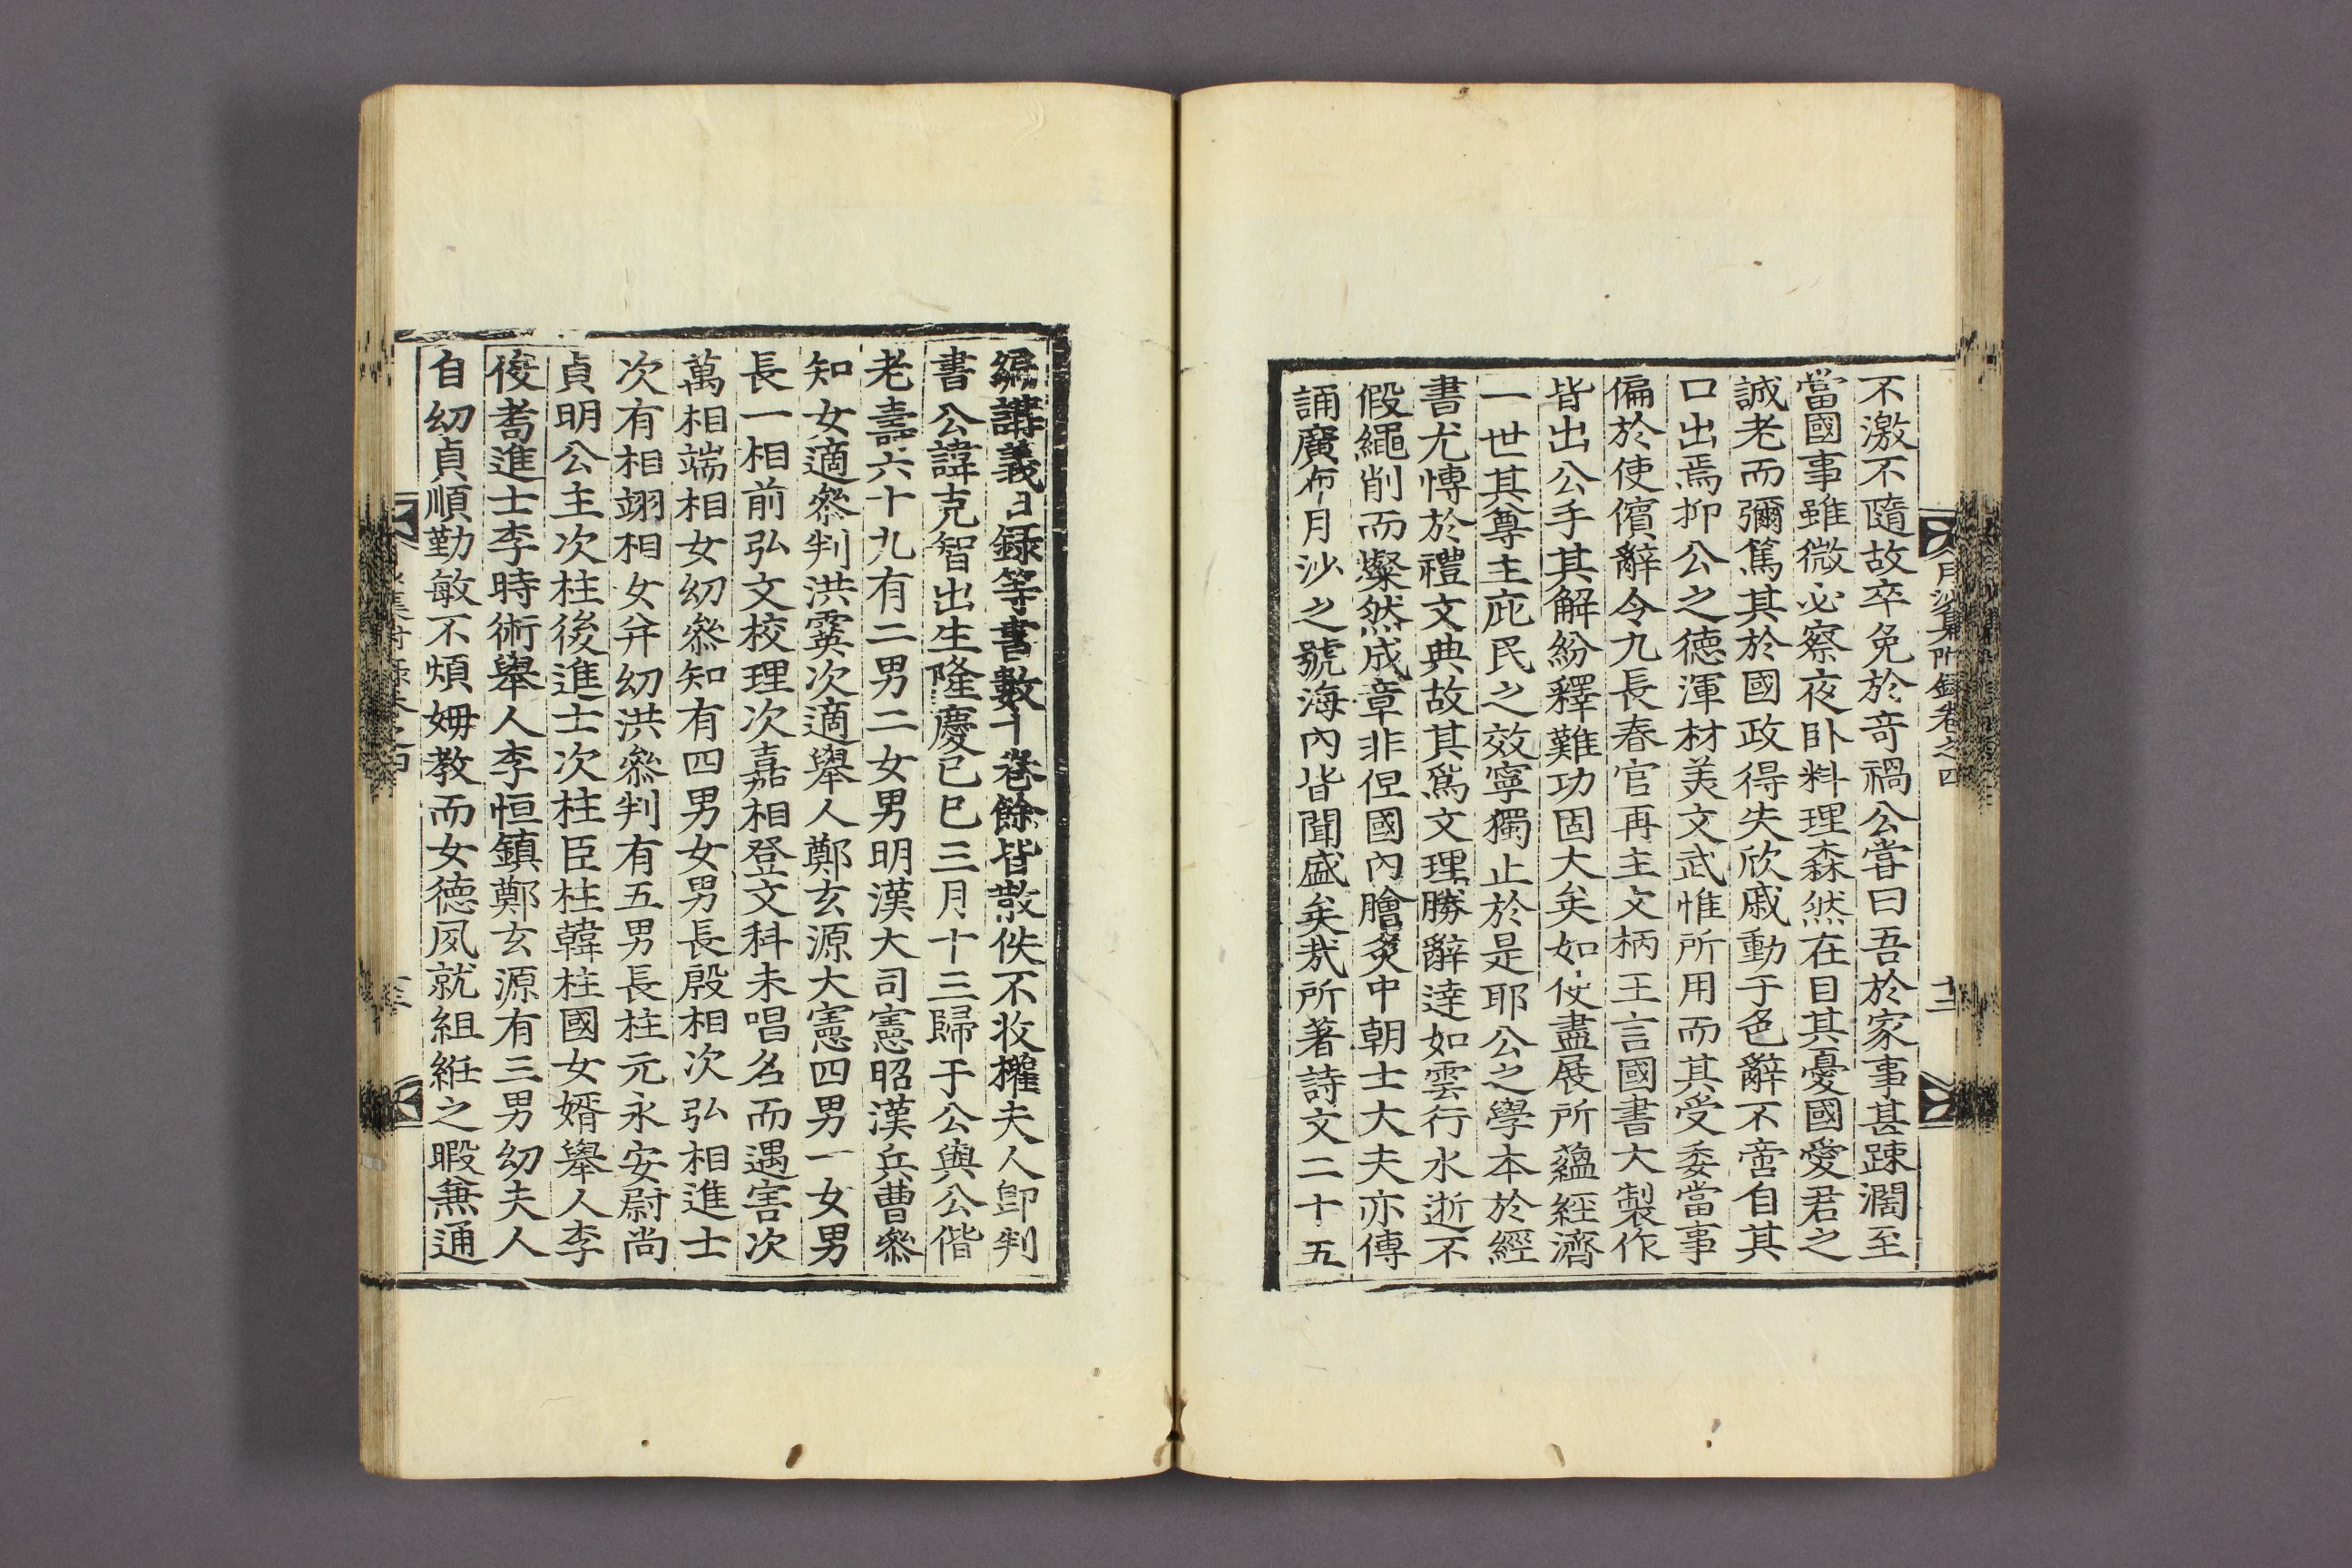 月沙集附錄卷之四
十二
不激不隨故卒免於奇禍公嘗曰吾於家事甚踈濶至
當國事雖微必察夜卧料理森然在目其憂國愛君之
誠老而彌篤其於國政得失欣戚動于色辭不啻自其
口出焉抑公之德渾材美文武惟所用而其受委當事
偏於使儐辭令九長春官再主文柄王言國書大製作
皆出公手其解紛釋難功固大矣如使盡展所蘊經濟
一世其尊主庇民之效寧獨止於是耶公之學本於經
書尤慱於禮文典故其爲文理勝辭達如雲行水逝不
假繩削而燦然成章非但國內膾炙中朝士大夫亦傳
誦廣布月沙之號海內皆聞盛矣㢤所著詩文二十五
編講義日録等書數十卷餘皆散佚不收權夫人卽判
書公諱克智出生隆慶己巳三月十三歸于公與公偕
老壽六十九有二男二女男明漢大司憲昭漢兵曹參
知女適叅判洪霙次適擧人鄭玄源大憲四男一女男
長一相前弘文校理次嘉相登文科未唱名而遇害次
萬相端相女幼叅知有四男女男長殷相次弘相進士
次有相翊相女幷幼洪叅判有五男長柱元永安尉尚
貞明公主次柱後進士次柱臣柱韓柱國女婿擧人李
俊耉進士李時術擧人李恒鎮鄭玄源有三男幼夫人
自幼貞順勤敏不煩姆教而女德夙就組紝之暇兼通